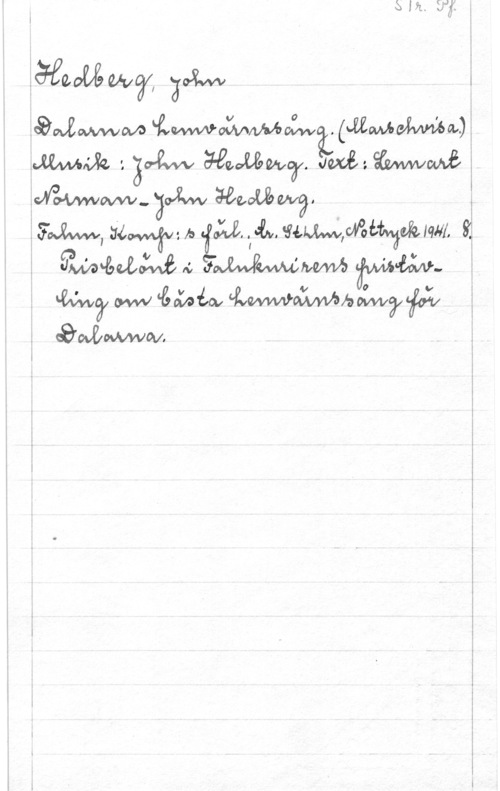 S Tr. Pf.
Hedberg, John
Dalarnas hemvärnssång. (Marschvisa.)
Musik : John Hedberg. Text : Lennart
Norman - John Hedberg.
Falun, Komp: s förl.; dr. Sthlm, Nottryck 1941. 8.
Prisbelönt i Falukurirens pristäv-
ling om bästa hemvärnssång för
Dalarna.